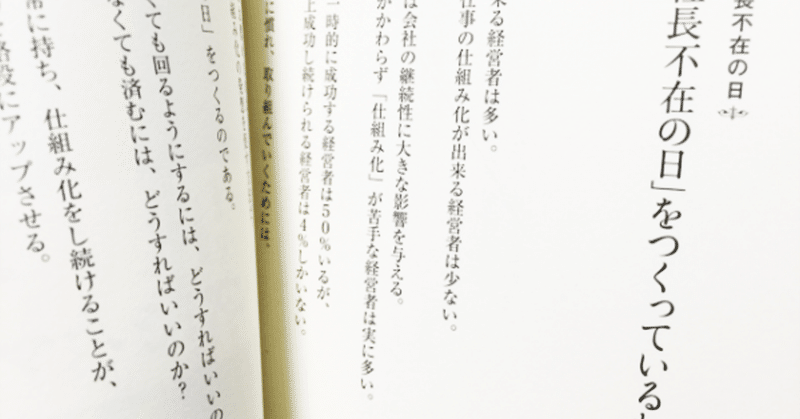 長不在の日
社長不在の日」をつくっている
来る経営者は多い。
仕事の仕組み化が出来る経営者は少ない。
は会社の継続性に大きな影響を与える。
かかわらず「仕組み化」が苦手な経営者は実に多い。
一時的に成功する経営者は50%いるが、
上成功し続けられる経営者は4%しかいない。
に慣れ、取り組んでいくためには、
の日」をつくるのである。
くても回るようにするには、どうすればいいの
なくても済むには、どうすればいいのか?
常に持ち、仕組み化をし続けることが、
格段にアップさせる。